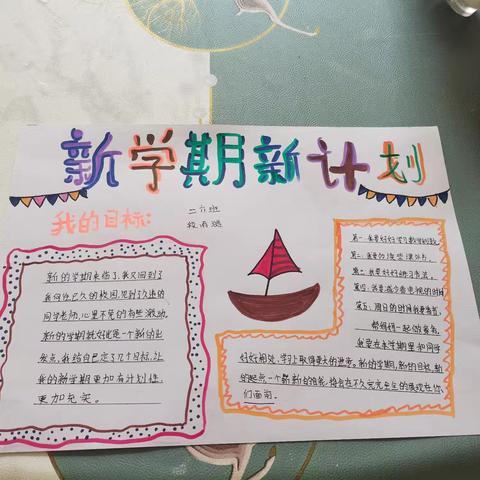 新学期新计划
我的目标:
二六班
新的学期来临了,我又回到了
我向往已久的校园,见到久违的
同学老师,心里不免的有些激动,
新的学期就好比是一个新的出
发点,我给自己定了几个目标,让
我的新学期更加有计划性,
更加充实。
第一,我要好好学习,
第二,我要多读些课外书。
第三,我要好好练习书法。
第四,我要减少看电视的时间
第五,周日的时候我要
帮妈妈一起做家务。
我要在本学期里和同学
好好相处,学习上取得更大的进步。新的学期,新的目标,新
的起点,一个崭新的我,将会在不久完完全全的展现在你
们面前。